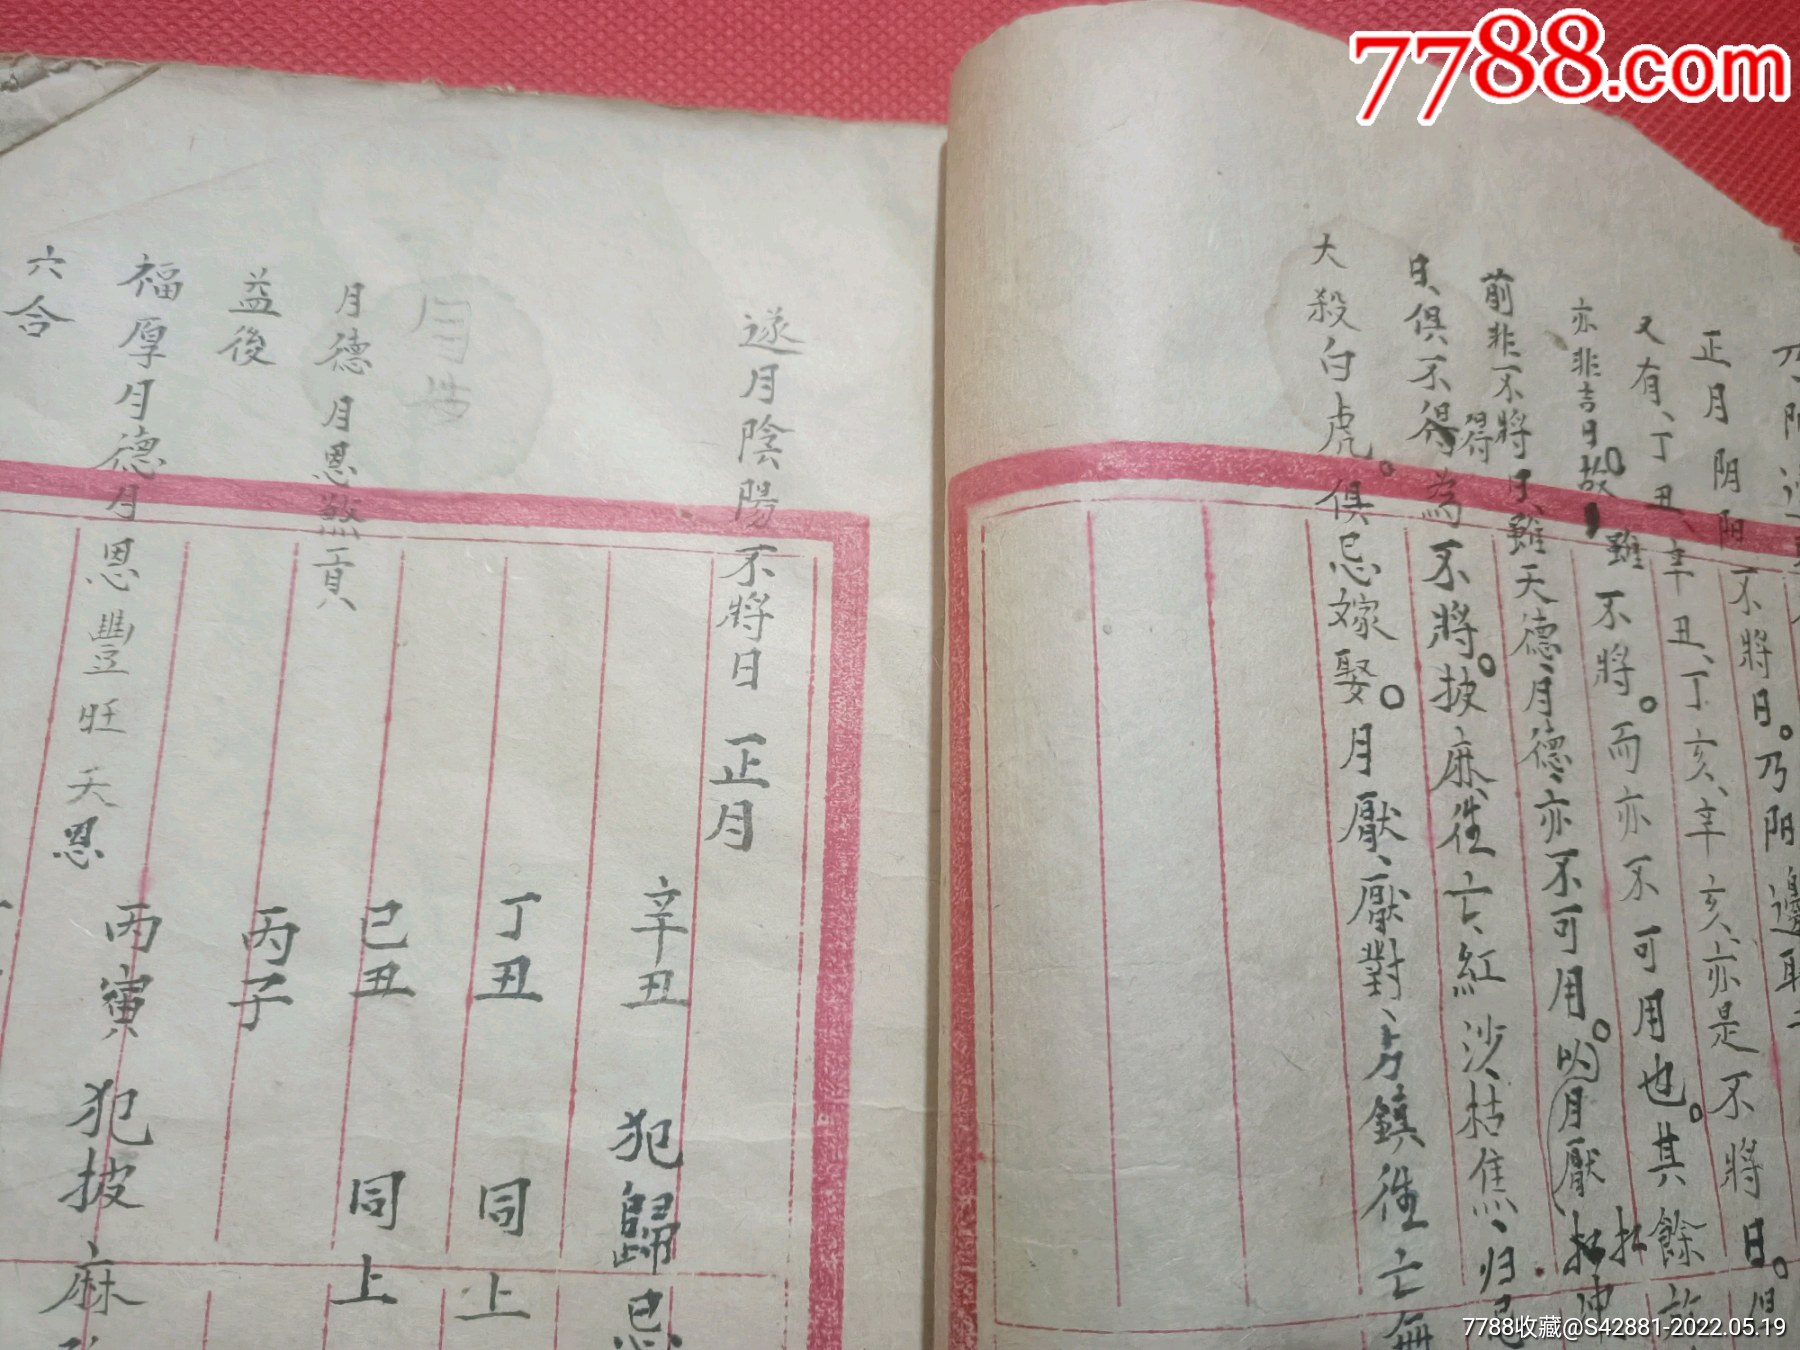 7788.com
正月阴阳不將日。乃阳邊
又有、丁丑、辛丑、丁亥、辛亥、亦是不將日。
亦非吉日。故雖不將。而亦不可用也。其餘
前非不將日、雖天德、月德、亦不可用。以月厭
日、俱不得為不將。披麻、徃亡、紅沙、枯焦、归忌
得
大殺白虎。俱忌嫁娶。月厭、厭對、方鎮徃亡無
遂月陰陽不將日 正月
辛丑 犯歸忌
丁丑 同上
己丑 同上
月德 月恩 丙子
益後
福厚月德月恩豐旺天恩 丙寅 犯披麻
六合
7788收藏@S42881-2022.05.19